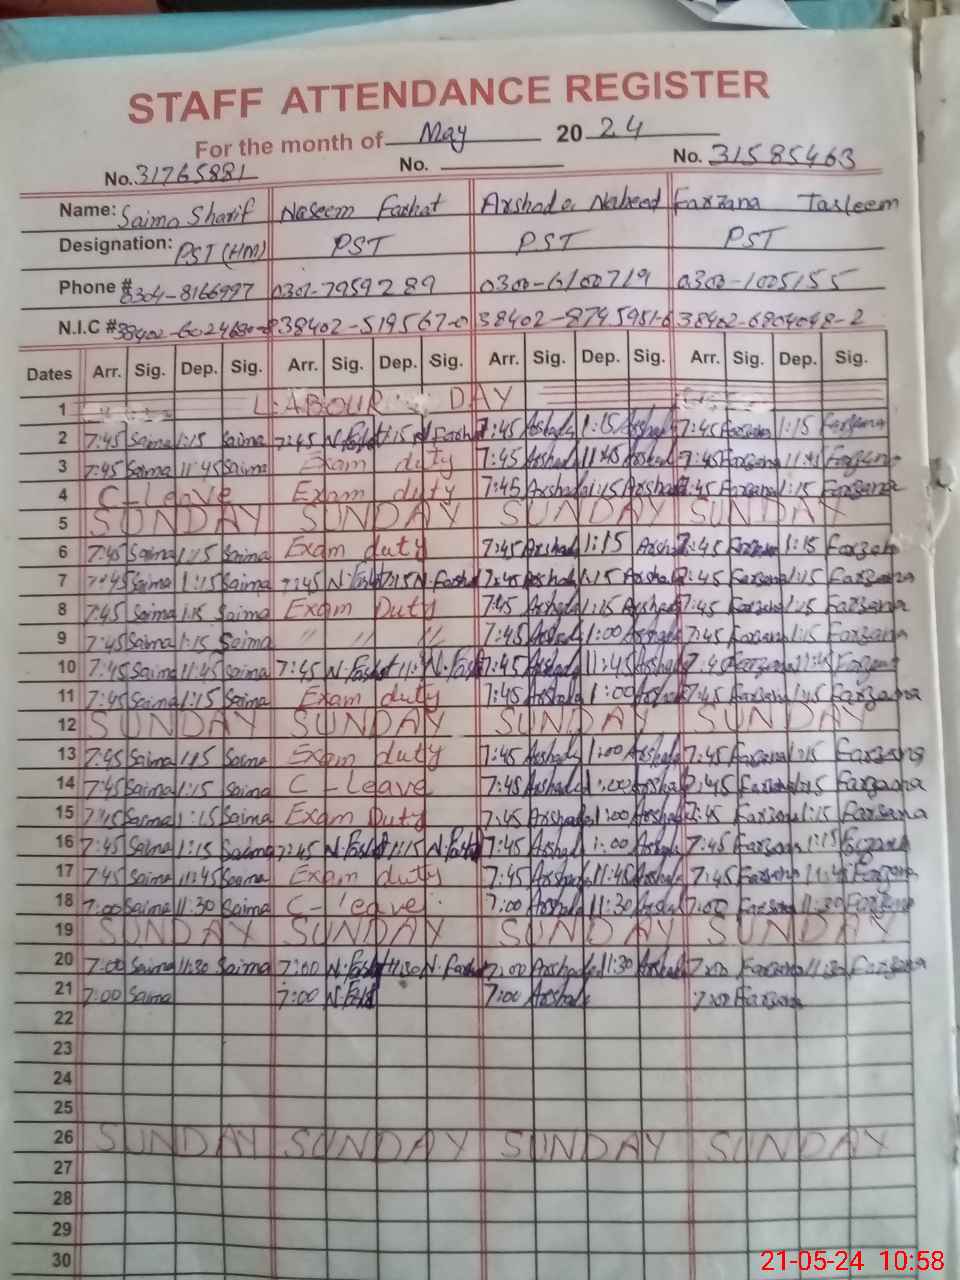 STAFF ATTENDANCE REGISTER
For the month of May 2024
No. 31765881 No. No. 31585463
Name: Saima Sharif Naseem Farhat Arshada Naheed Farzana Tasleem
Designation: PST (HM) PST PST PST
Phone # 0304-8166997 0301-7959289 0300-6100719 0300-1005155
N.I.C # 38402-519567-0 38402-6804048-2
Dates Arr. Sig. Dep. Sig. Arr. Sig. Dep. Sig. Arr. Sig. Dep. Sig. Arr. Sig. Dep. Sig.
1 LABOUR DAY
2 7:45 Saima 1:15 Saima 7:45 N.Farhat 1:15 N.Farhat 7:45 Arshada 1:15 Arshada 7:45 Farzana 1:15 Farzana
3 7:45 Saima 11:45 Saima Exam duty 7:45 Arshada 11:45 Arshada 7:45 Farzana 11:45 Farzana
4 C-Leave Exam duty 7:45 Arshada 1:15 Arshada 7:45 Farzana 1:15 Farzana
5 SUNDAY SUNDAY SUNDAY SUNDAY
6 7:45 Saima 1:15 Saima Exam duty 7:45 Arshada 1:15 Arshada 7:45 Farzana 1:15 Farzana
7 7:45 Saima 1:15 Saima 7:45 N.Farhat 1:15 N.Farhat 7:45 Arshada 1:15 Arshada 7:45 Farzana 1:15 Farzana
8 7:45 Saima 1:15 Saima Exam Duty 7:45 Arshada 1:15 Arshada 7:45 Farzana 1:15 Farzana
9 7:45 Saima 1:15 Saima " " " 7:45 Arshada 1:00 Arshada 7:45 Farzana 1:15 Farzana
10 7:45 Saima 11:45 Saima 7:45 N.Farhat N.Farhat 7:45 Arshada 11:45 Arshada 7:45 Farzana 11:45 Farzana
11 7:45 Saima 1:15 Saima Exam duty 7:45 Arshada 1:00 Arshada 7:45 Farzana 1:15 Farzana
12 SUNDAY SUNDAY SUNDAY SUNDAY
13 7:45 Saima 1:15 Saima Exam duty 7:45 Arshada 1:00 Arshada 7:45 Farzana 1:15 Farzana
14 7:45 Saima 1:15 Saima C-Leave 7:45 Arshada 1:00 Arshada 7:45 Farzana 1:15 Farzana
15 7:45 Saima 1:15 Saima Exam Duty 7:45 Arshada 1:00 Arshada 7:45 Farzana 1:15 Farzana
16 7:45 Saima 1:15 Saima 7:45 N.Farhat 1:15 N.Farhat 7:45 Arshada 1:00 Arshada 7:45 Farzana 1:15 Farzana
17 7:45 Saima 11:45 Saima Exam duty 7:45 Arshada 11:45 Arshada 7:45 Farzana 11:45 Farzana
18 7:00 Saima 11:30 Saima C-leave 7:00 Arshada 11:30 Arshada 7:00 Farzana 11:30 Farzana
19 SUNDAY SUNDAY SUNDAY SUNDAY
20 7:00 Saima 11:30 Saima 7:00 N.Farhat 11:30 N.Farhat 7:00 Arshada 11:30 Arshada 7:00 Farzana 11:30 Farzana
21 7:00 Saima 7:00 N.Farhat 7:00 Arshada 7:00 Farzana
22
23
24
25
26 SUNDAY SUNDAY SUNDAY SUNDAY
27
28
29
30
21-05-24 10:58